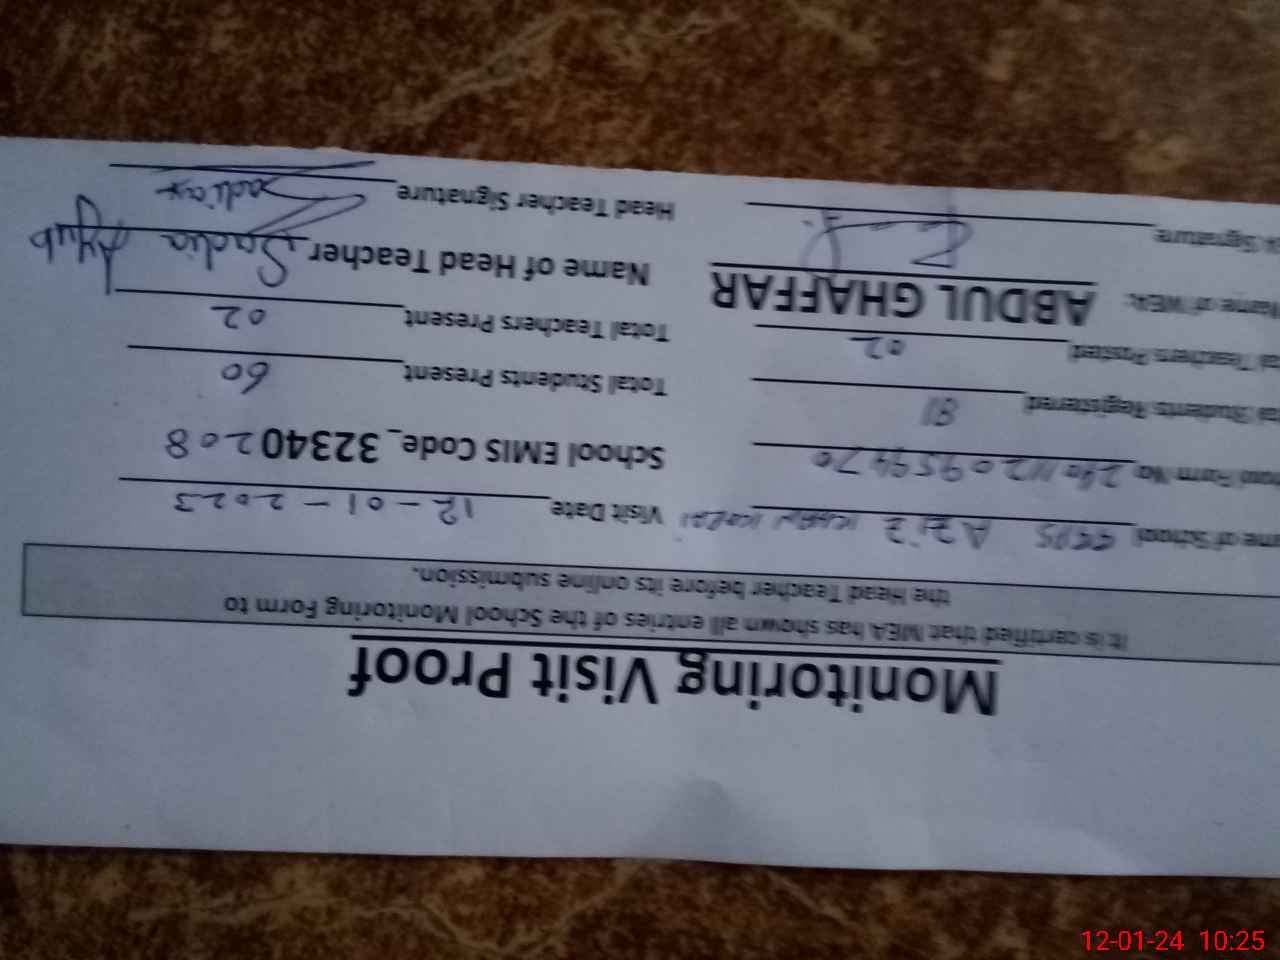 Monitoring Visit Proof
It is certified that MEA has shown all entries of the School Monitoring Form to
the Head Teacher before its online submission.
me of School Aziz Visit Date 12-01-2023
Form No. School EMIS Code_ 32340208
tal Students Registered 81 Total Students Present 60
al Teachers Posted 02 Total Teachers Present 02
Name of MEA: ABDUL GHAFFAR Name of Head Teacher Sadia Ayub
Signature Head Teacher Signature Sadia
12-01-24 10:25